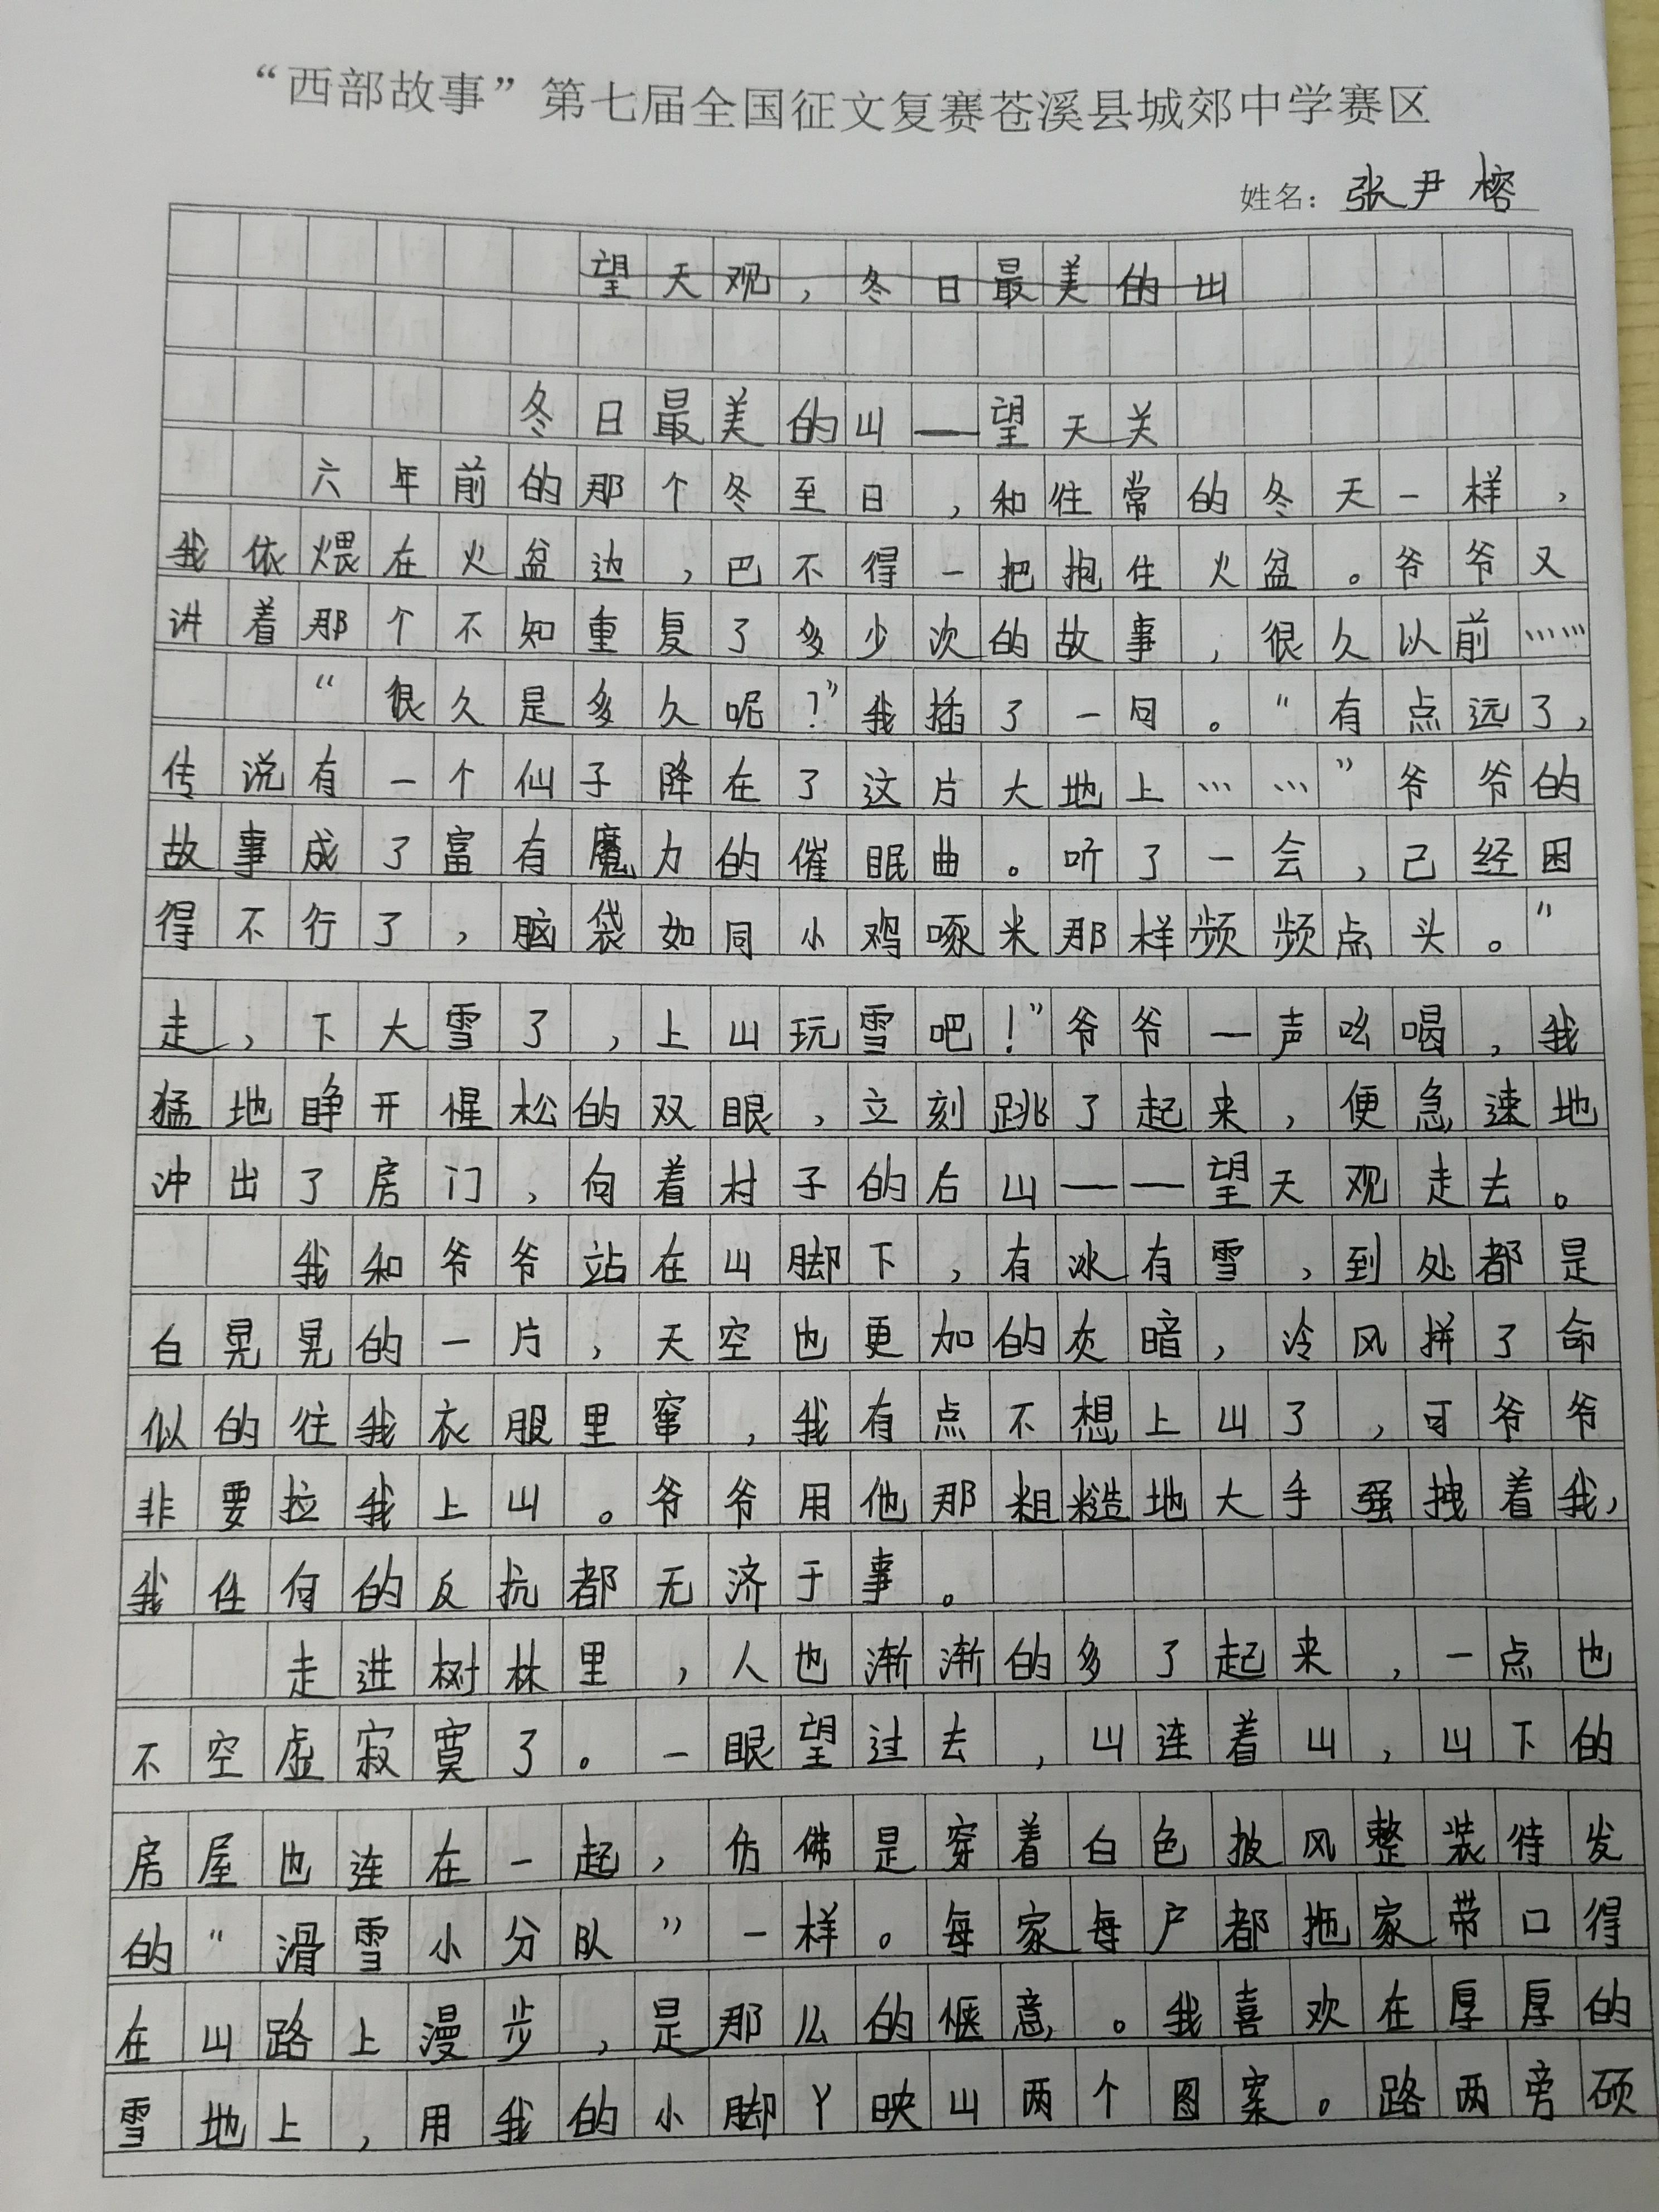 “西部故事”第七届全国征文复赛苍溪县城郊中学赛区
姓名：张尹榕
望天观，冬日最美的山
冬日最美的山——望天关
六年前的那个冬至日，和往常的冬天一样，
我依煨在火盆边，巴不得一把抱住火盆。爷爷又
讲着那个不知重复了多少次的故事，很久以前……
“很久是多久呢？”我插了一句。“有点远了，
传说有一个仙子降在了这片大地上……”爷爷的
故事成了富有魔力的催眠曲。听了一会，已经困
得不行了，脑袋如同小鸡啄米那样频频点头。“
走，下大雪了，上山玩雪吧！”爷爷一声吆喝，我
猛地睁开惺松的双眼，立刻跳了起来，便急速地
冲出了房门，向着村子的后山——望天观走去。
我和爷爷站在山脚下，有冰有雪，到处都是
白晃晃的一片，天空也更加的灰暗，冷风拼了命
似的往我衣服里窜，我有点不想上山了，可爷爷
非要拉我上山。爷爷用他那粗糙地大手强拽着我，
我任何的反抗都无济于事。
走进树林里，人也渐渐的多了起来，一点也
不空虚寂寞了。一眼望过去，山连着山，山下的
房屋也连在一起，仿佛是穿着白色披风整装待发
的“滑雪小分队”一样。每家每户都拖家带口得
在山路上漫步，是那么的惬意。我喜欢在厚厚的
雪地上，用我的小脚丫映山两个图案。路两旁硕